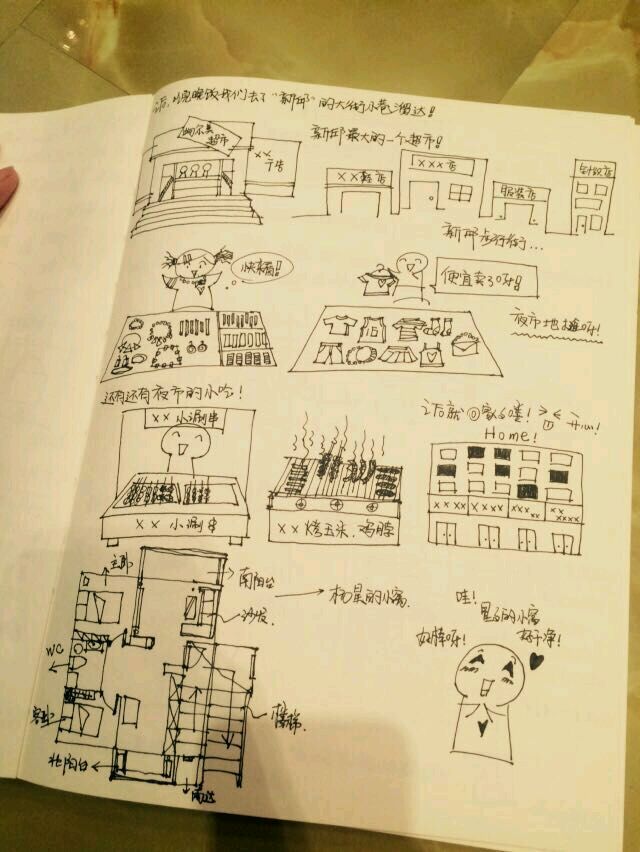 之后,吃完晚饭我们去了"新邱"的大街小巷溜达!!
新邱最大的一个超市!!
超市
××
广告
××鞋店
×××店
服装店
新邱步行街...
快来看!!
便宜卖了呀!!
夜市地摊呀!
还有还有夜市的小吃!
之后就回家了喽!
××小涮串
Home!
××小涮串
××烤玉米、鸡脖
主卧
南阳台
沙发
的小窝.
哇!
的小窝
好棒呀!
好干净!
WC
客卧
楼梯
北阳台